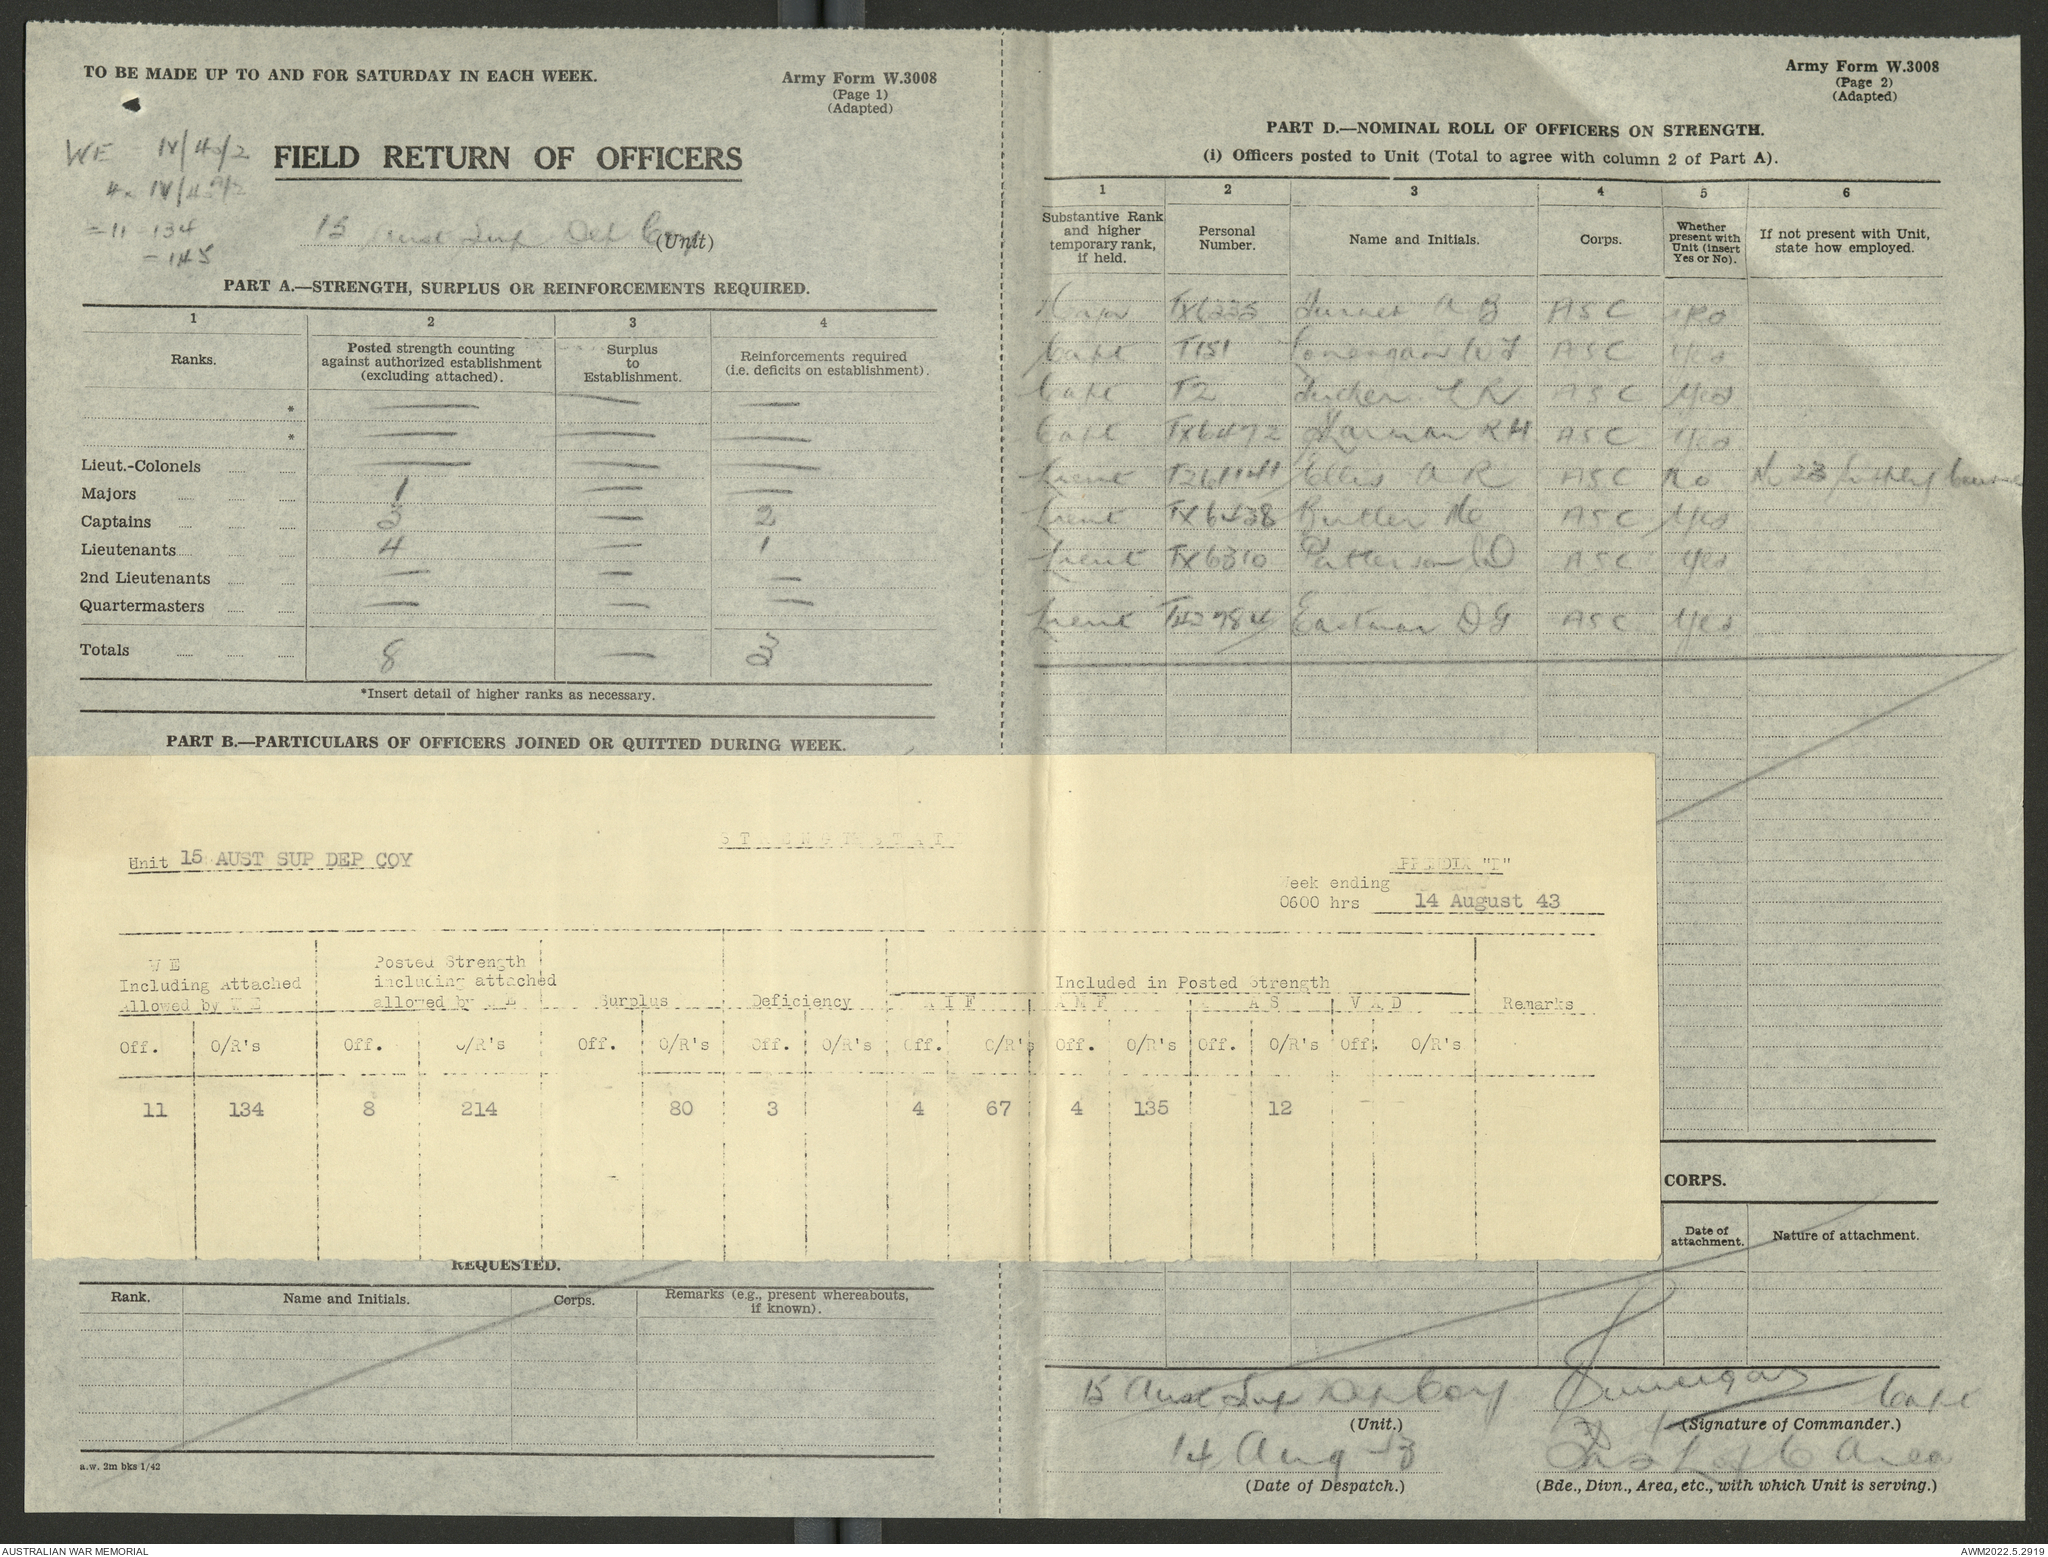 TO BE MADE UP TO AND FOR SATURDAY IN EACH WEEK.
Army Form W.3008
(Page 1)
(Adapted)
WE
= 11 - 134
- 145
FIELD RETURN OF OFFICERS
15 Aust Sup Dep Coy (Unit)
PART A.—STRENGTH, SURPLUS OR REINFORCEMENTS REQUIRED.
1 2 3 4
Ranks. Posted strength counting against authorized establishment (excluding attached). Surplus to Establishment. Reinforcements required (i.e. deficits on establishment).
* — — —
* — — —
Lieut.-Colonels — — —
Majors 1 — —
Captains 3 — 2
Lieutenants 4 — 1
2nd Lieutenants — — —
Quartermasters — — —
Totals 8 — 3
*Insert detail of higher ranks as necessary.
PART B.—PARTICULARS OF OFFICERS JOINED OR QUITTED DURING WEEK.
REQUESTED.
Rank. Name and Initials. Corps. Remarks (e.g., present whereabouts, if known).
a.w. 2m bks 1/42
Army Form W.3008
(Page 2)
(Adapted)
PART D.—NOMINAL ROLL OF OFFICERS ON STRENGTH.
(i) Officers posted to Unit (Total to agree with column 2 of Part A).
1 2 3 4 5 6
Substantive Rank and higher temporary rank, if held. Personal Number. Name and Initials. Corps. Whether present with Unit (insert Yes or No). If not present with Unit, state how employed.
Major TX6235 Turner A G ASC Yes
Capt T151 Lonergan W J ASC Yes
Capt T2 Tucker L R ASC Yes
Capt TX6472 Harman R H ASC Yes
Lieut Ellis A R ASC No No 23
Lieut TX6438 Butler ASC Yes
Lieut TX6310 Patterson ASC Yes
Lieut Eastman D G ASC Yes
STRENGTH STATE
Unit 15 AUST SUP DEP COY
APPENDIX
Week ending
0600 hrs 14 August 43
W E Including Attached Allowed by W E
Posted Strength including attached allowed by W E
Surplus Deficiency
Included in Posted Strength
A I F A M F A AS V A D Remarks
Off. O/R's Off. O/R's Off. O/R's Off. O/R's Off. O/R's Off. O/R's Off. O/R's Off. O/R's
11 134 8 214 80 3 4 67 4 135 12
CORPS.
Date of attachment. Nature of attachment.
15 Aust Sup Dep Coy Lonergan Capt
(Unit.) (Signature of Commander.)
14 Aug 43 L of C Area
(Date of Despatch.) (Bde., Divn., Area, etc., with which Unit is serving.)
AUSTRALIAN WAR MEMORIAL AWM2022.5.2919